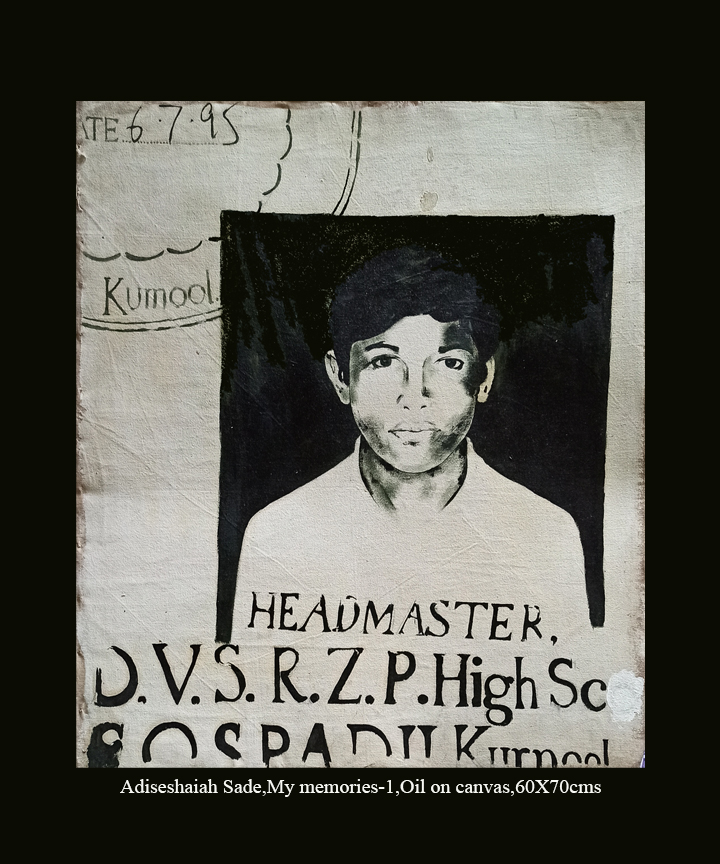 TE 6.7.95
Kurnool.
HEADMASTER,
D.V.S.R.Z.P.High Sc
GOSPADU Kurnool
Adiseshaiah Sade,My memories-1,Oil on canvas,60X70cms